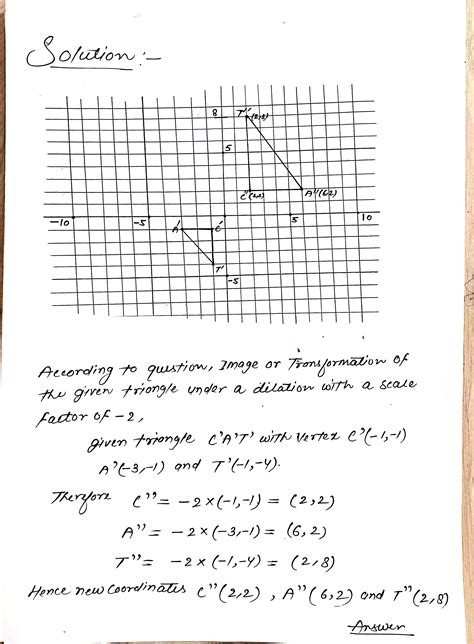 Solution:-
8 T"(2,8)
5
C"(2,2) A"(6,2)
-10 -5 5 10
A' C'
T'
-5
According to question, Image or Transformation of
the given triangle under a dilation with a scale
factor of -2,
given triangle C'A'T' with vertex C'(-1,-1)
A'(-3,-1) and T'(-1,-4).
Therefore C" = -2×(-1,-1) = (2,2)
A" = -2×(-3,-1) = (6,2)
T" = -2×(-1,-4) = (2,8)
Hence new coordinates C"(2,2), A"(6,2) and T"(2,8)
Answer